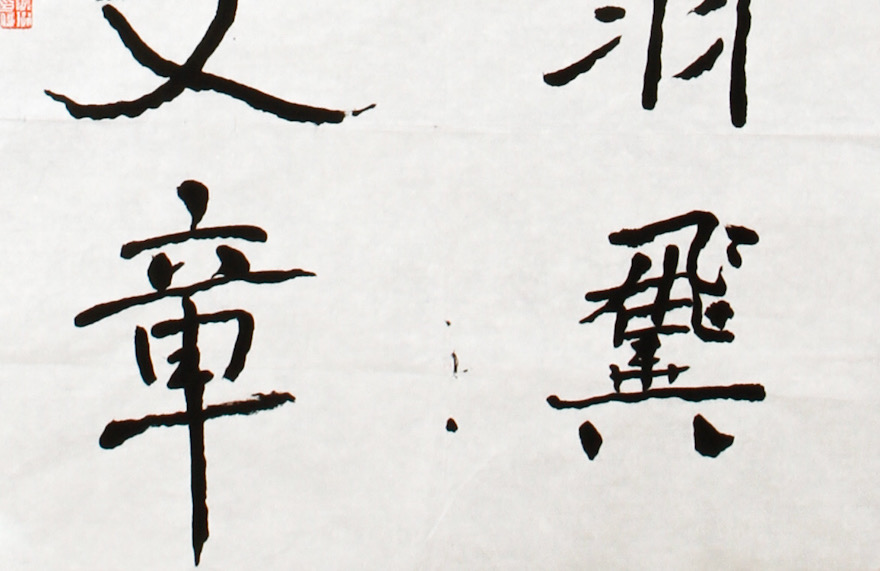 羽翼
文章